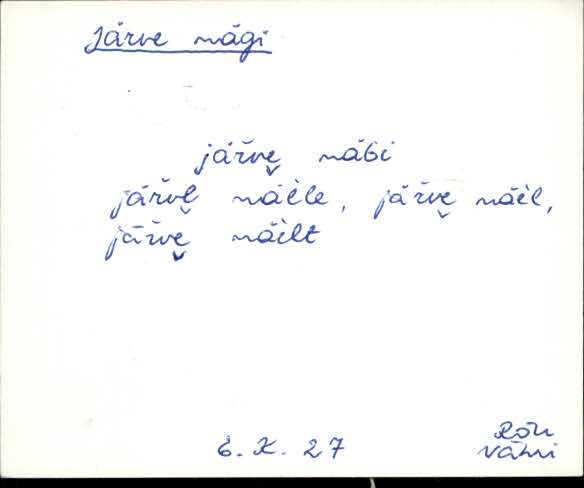 Järve mägi
järve mäG̀i
järvĕ mäèle, järvĕ mäèl,
järvĕ mäèlt
6. X. 27
Rõu
Vämi